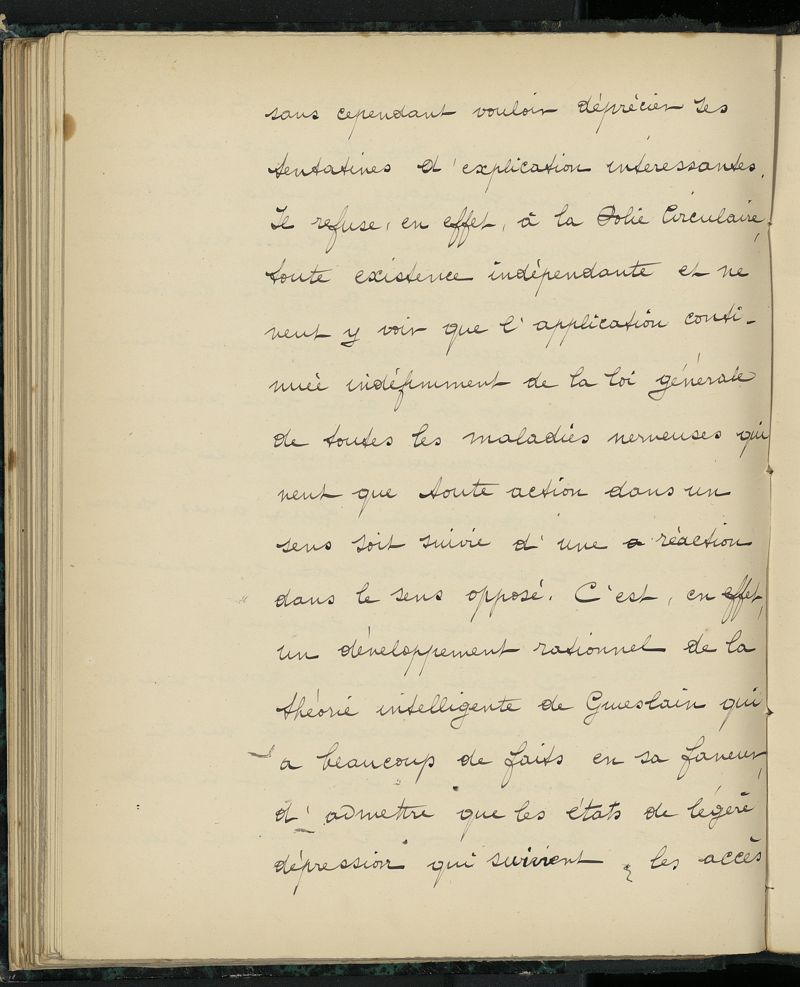 sans cependant vouloir déprécier ses
tentatives d'explication intéressantes.
Il refuse, en effet, à la Folie Circulaire,
toute existence indépendante et ne
veut y voir que l'application conti-
nuée indéfiniment de la loi générale
de toutes les maladies nerveuses qui
veut que toute action dans un
sens soit suivie d'une a réaction
dans le sens opposé. C'est, en effet,
un développement rationnel de la
théorie intelligente de Guislain qui
a beaucoup de faits en sa faveur,
d'admettre que les états de légère
dépression qui suivient les accès